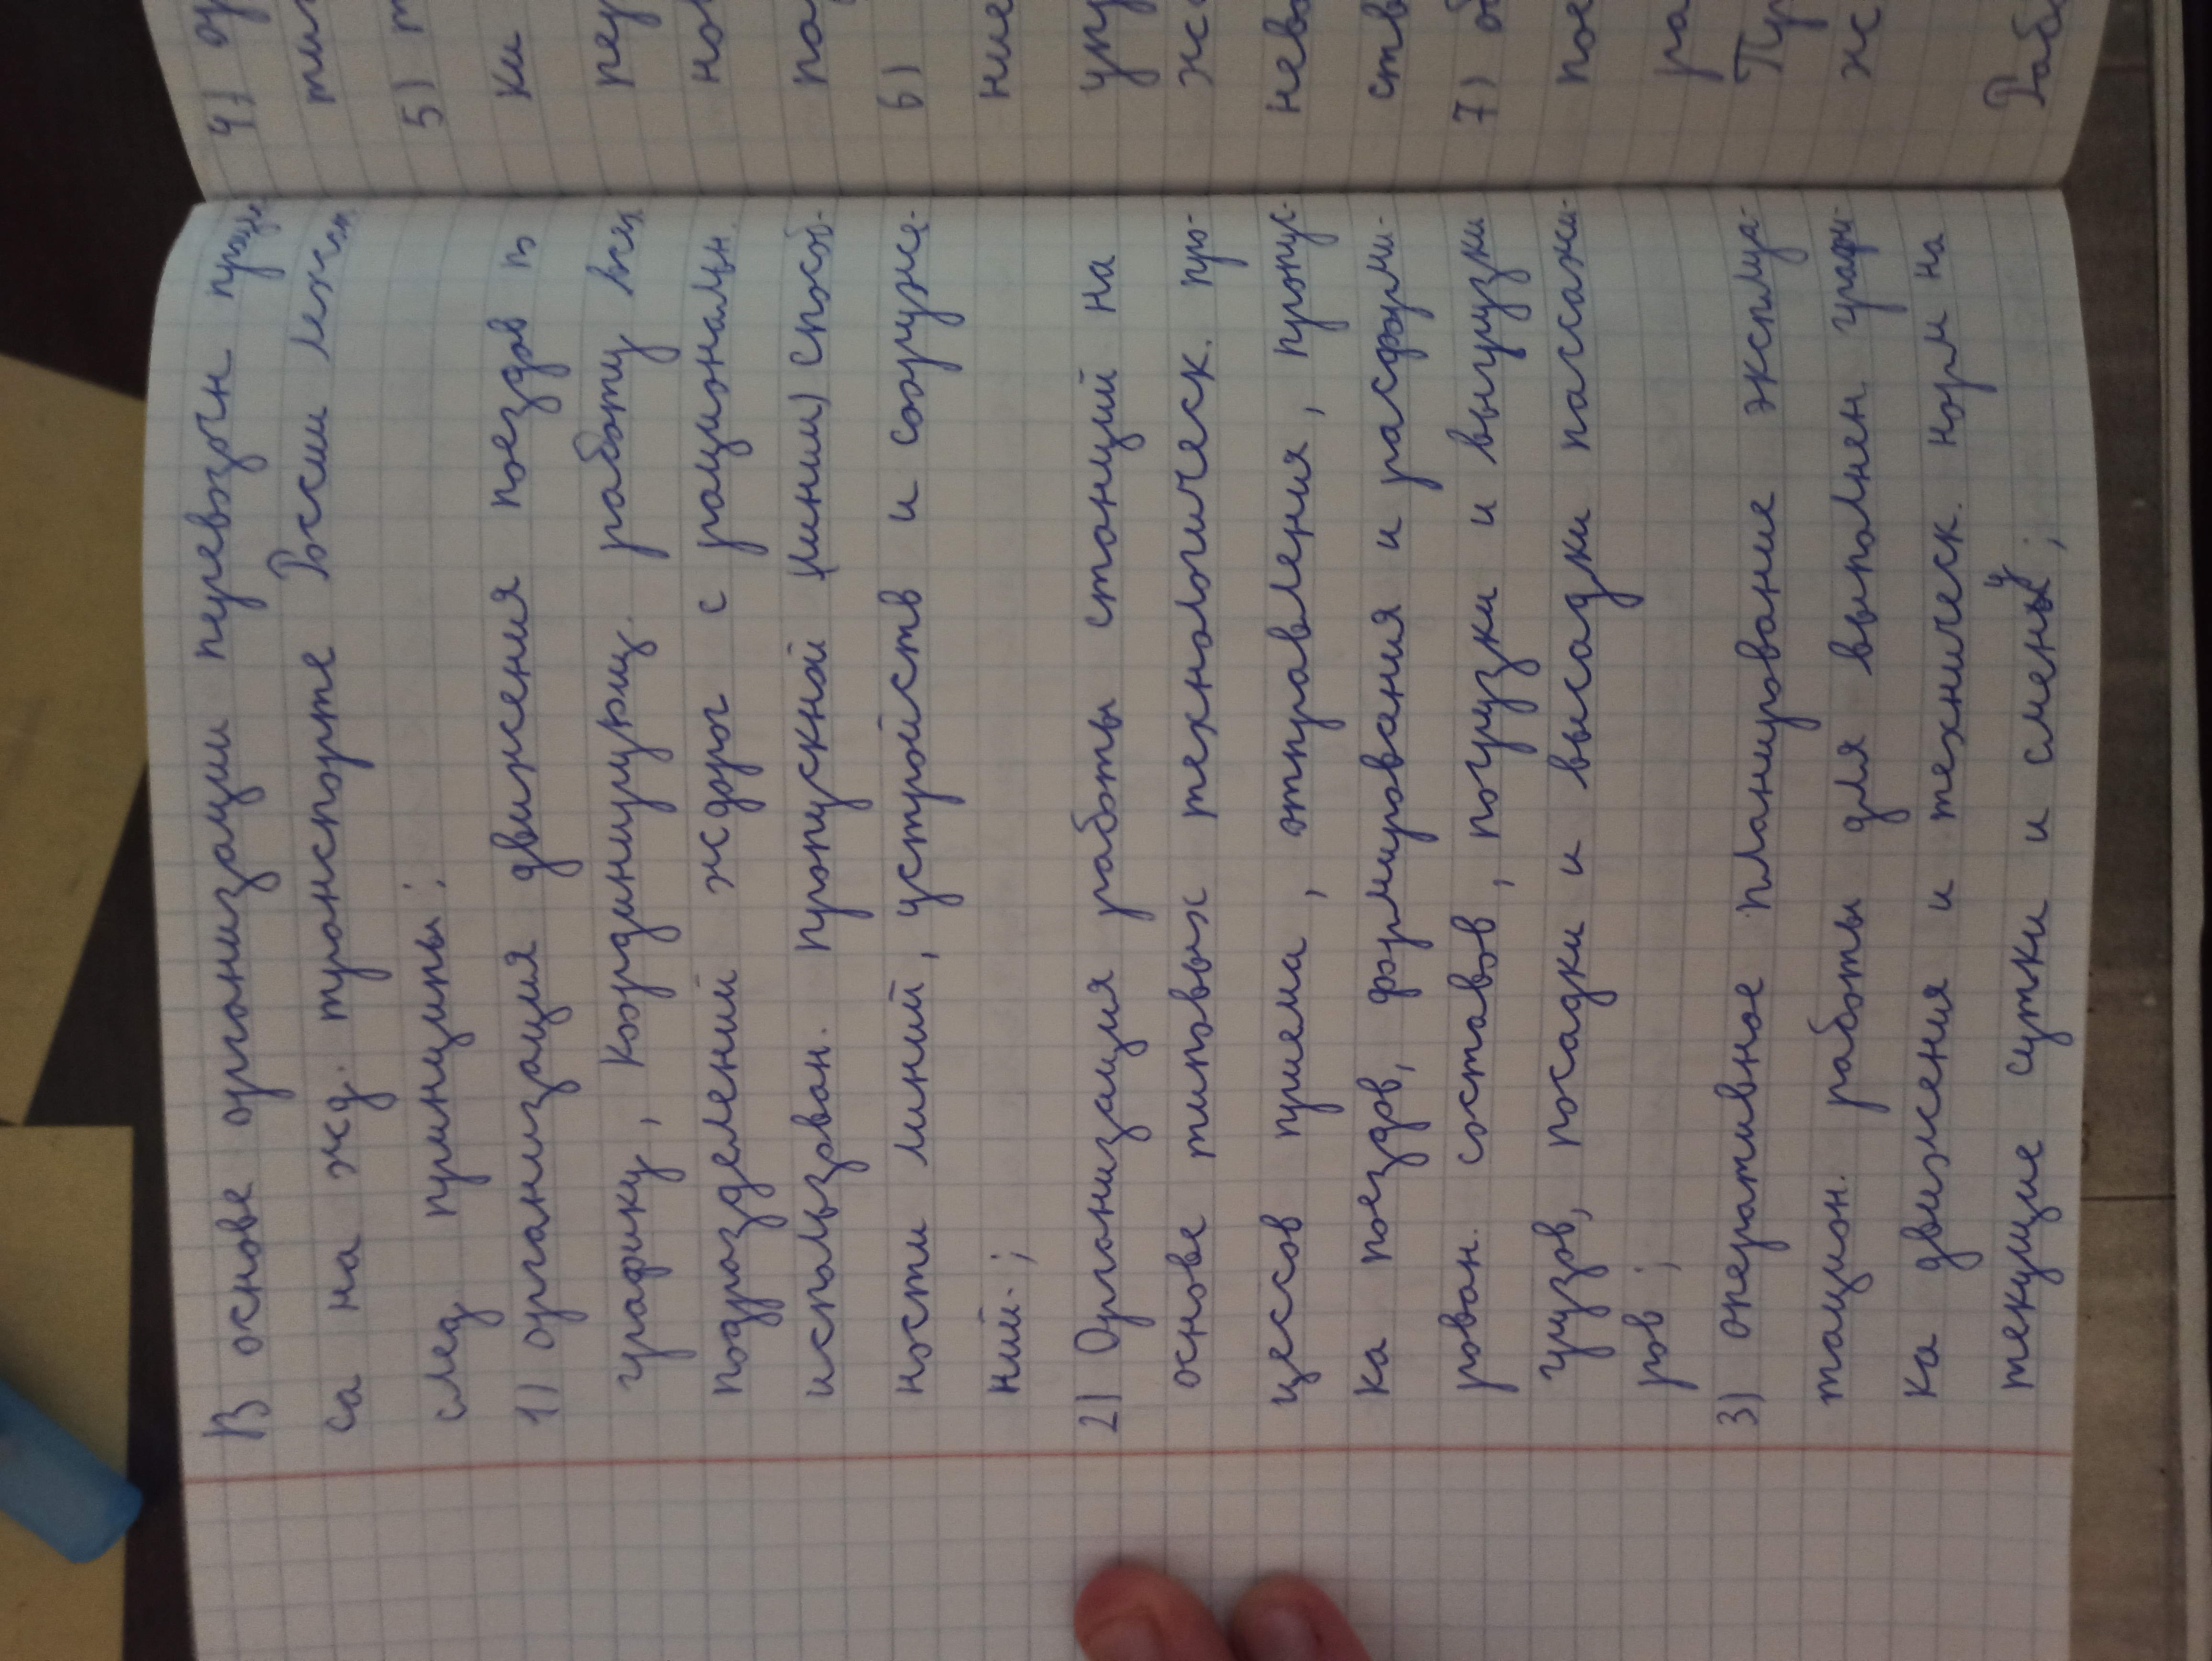 В основе организации перевозочн проце
са на жд. транспорте России лежат
след принципы:
1) организация движения поездов п
графику, координирующ. работу всех
подразделений ж дорог с рациональн.
использован. пропускной (линии) способ-
ности линий, устройств и сооруже-
ний.;
2) Организация работы станций на
основе типовых технологическ. про-
цессов приема, отправления, пропус-
ка поездов, формирования и расформи-
рован. составов, погрузки и выгрузки
грузов, посадки и высадки пассажи-
ров;
3) оперативное планирование эксплуа-
тацион. работы для выполнен. графи-
ка движения и техническ. норм на
текущие сутки и смену;
4) ор
5) т
ки
рег
но
6)
ние
невс
ств
7) об
пое
ра
ж
Раб